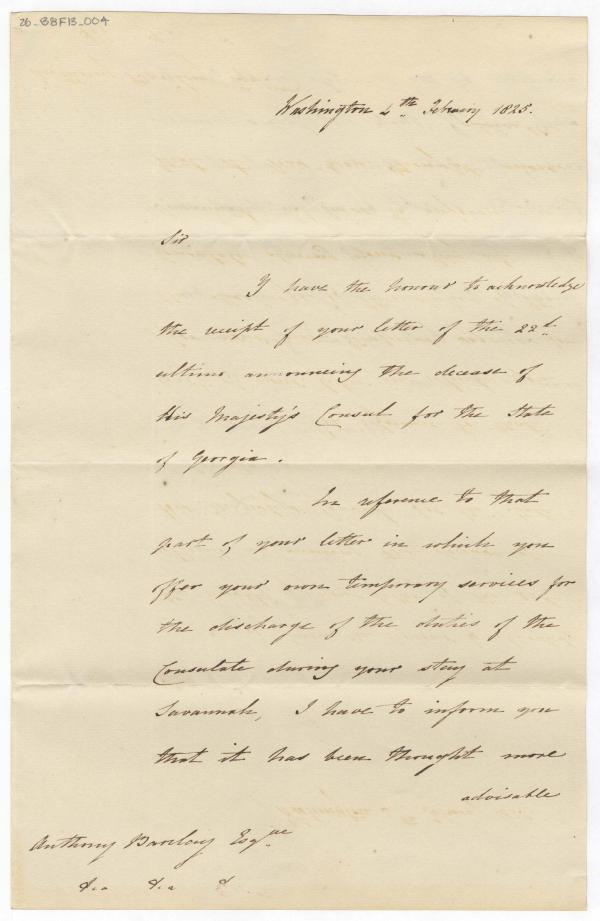 26-BBFB-004
Washington 4th February 1825.
Sir
I have the honour to acknowledge
the receipt of your letter of the 22d.
ultimo announcing the decease of
His Majesty's Consul for the State
of Georgia.
In reference to that
part of your letter in which you
offer your own temporary services for
the discharge of the duties of the
Consulate during your stay at
Savannah, I have to inform you
that it has been thought more
advisable
Anthony Barclay Esqre
&ca &ca &